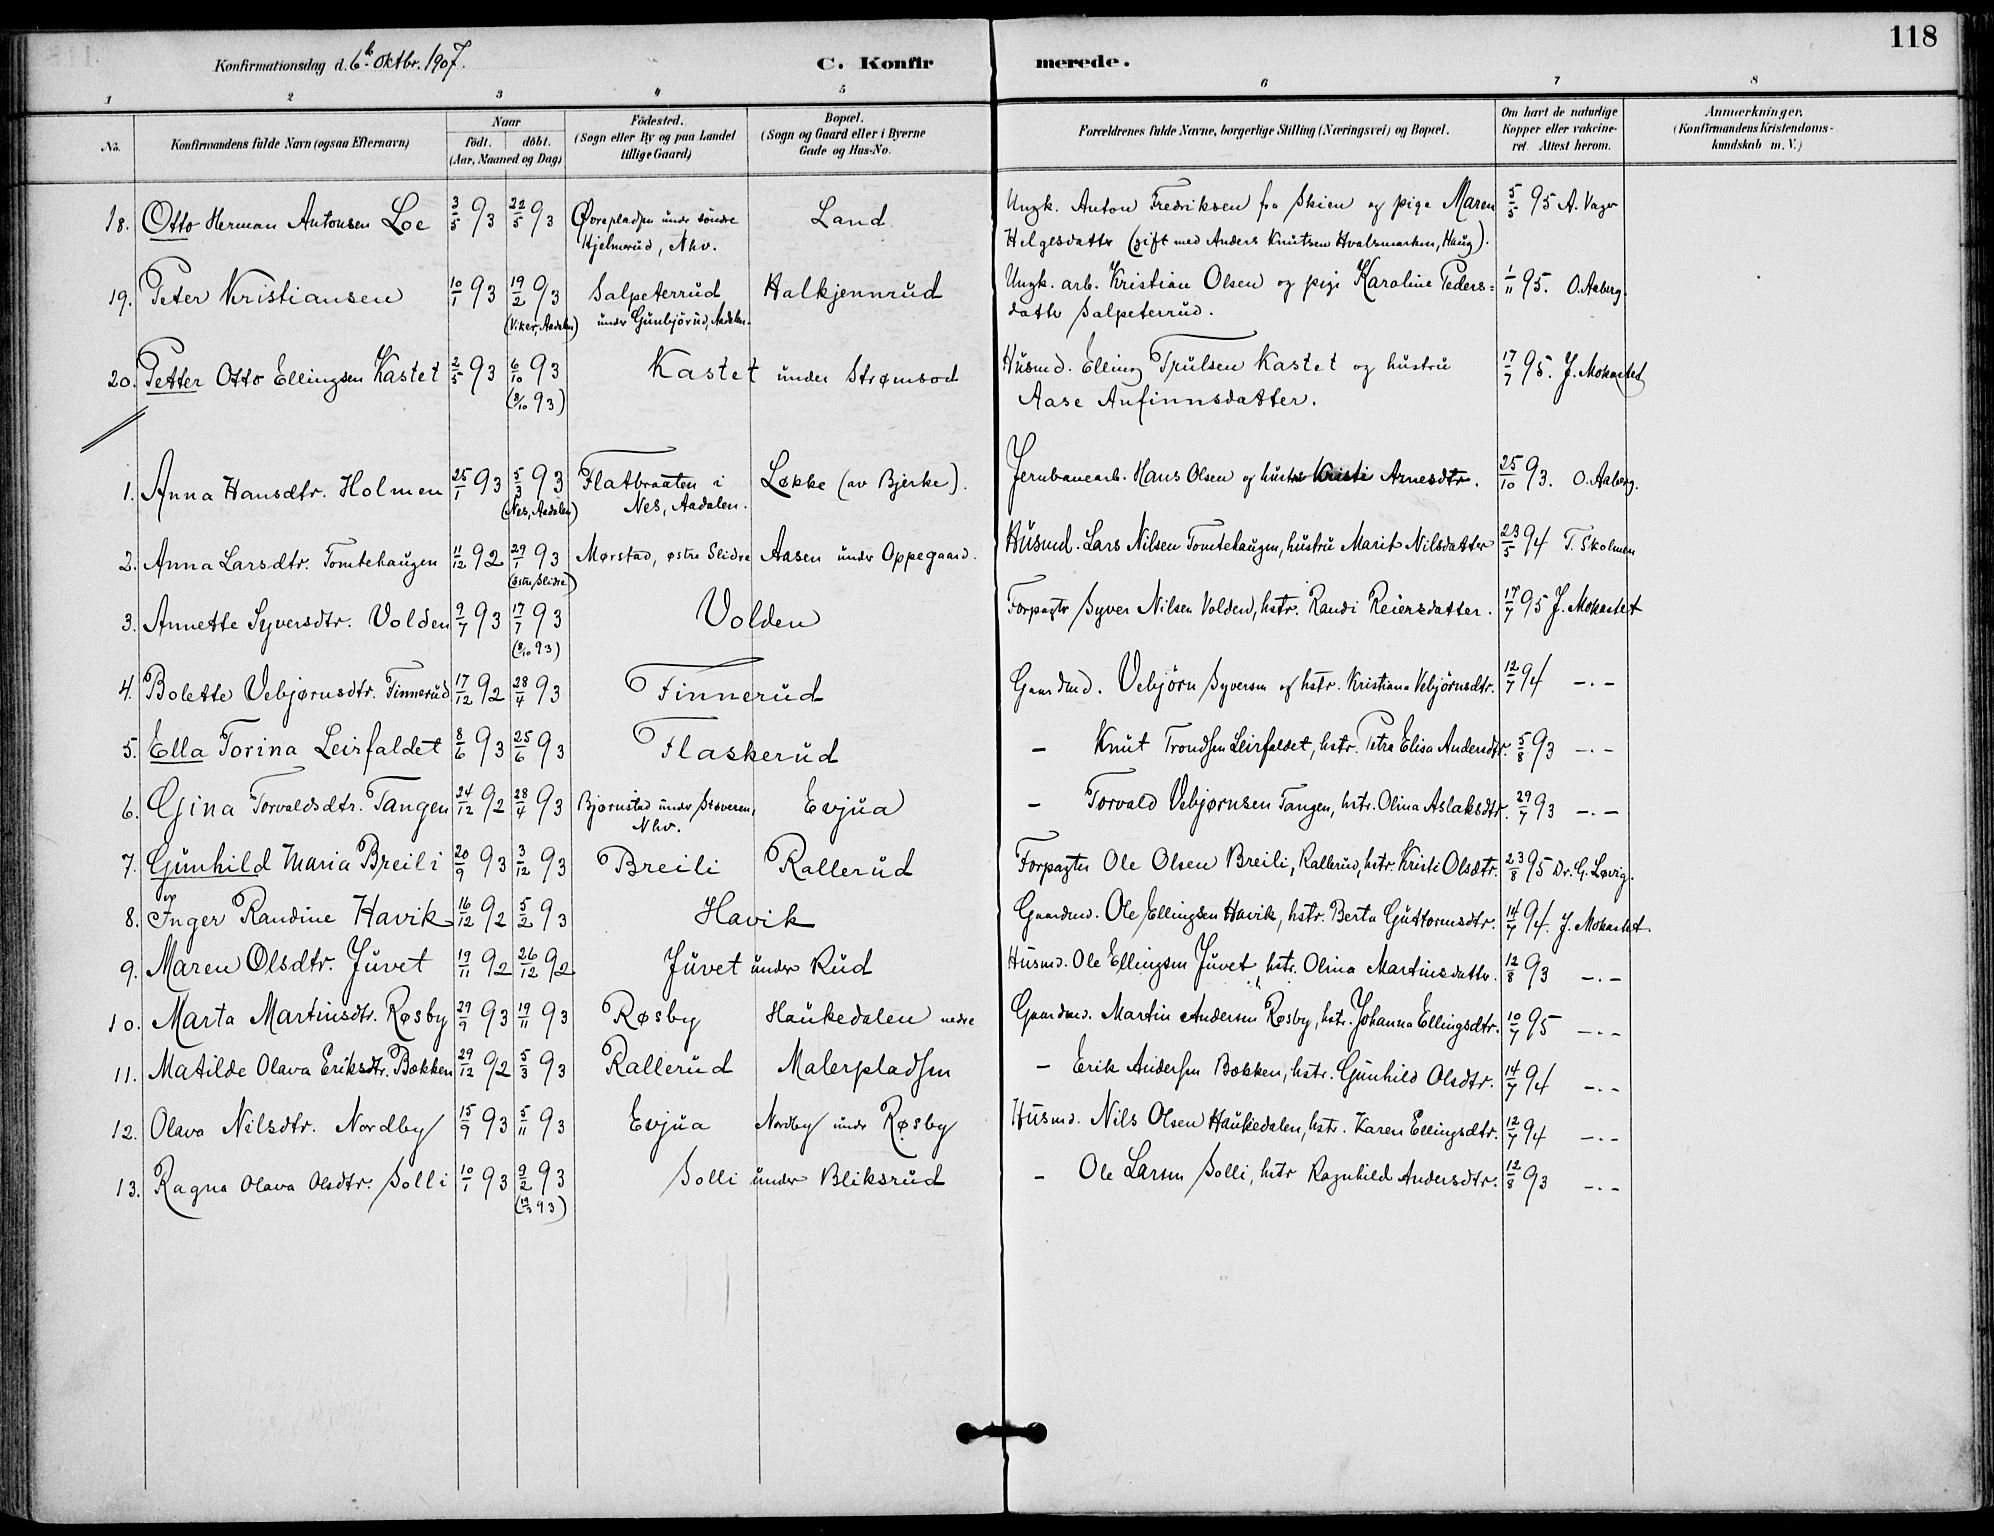 118
Konfirmationsdag d. 6te Oktbr. 1907.
C. Konfirmerede.
1 2 3 4 5 6 7 8
No. Konfirmandens fulde Navn (ogsaa Efternavn) Naar født. døbt. (Aar, Maaned og Dag) Fødested. (Sogn eller By og paa Landet tillige Gaard) Bopæl. (Sogn og Gaard eller i Byerne Gade og Hus-No. Forældrenes fulde Navne, borgerlige Stilling (Næringsvei) og Bopæl. Om havt de naturlige Kopper eller vakcineret. Attest herom. Anmærkninger. (Konfirmandens Kristendomskundskab m. V.)
18. Otto Herman Antonsen Loe 3/5 93 22/5 93 Øvrepladsen under søndre Hjelmerud, Nhv. Land Ungk. Anton Fredriksen fra Skien og pige Maren Helgesdatter (gift med Anders Knutsen Hvalsmarken, Haug). 5/5 95 A. Vager
19. Peter Kristiansen 10/1 93 19/2 93 (Viker, Aadalen) Salpeterrud under Gunbjørud, Aadalen. Halkjennrud Ungk. arb. Kristian Olsen og pige Karoline Pedersdatter Salpeterrud. 1/11 95. O. Aaberg.
20. Petter Otto Ellingsen Kastet 2/5 93 6/10 93 (8/10 93) Kastet under Strømsod Husmd. Elling Trulsen Kastet og hustru Aase Anfinnsdatter. 17/7 95. J. Mokastet
1. Anna Hansdtr. Holmen 25/1 93 5/3 93 (Nes, Aadalen) Flatbraaten i Nes, Aadalen. Løkke (av Bjerke). Jernbanearb. Hans Olsen og hustru Kristi Arnesdtr. 25/10 93. O. Aaberg.
2. Anna Larsdtr. Tomtehaugen 11/12 92 29/1 93 (østre Slidre) Mørstad, østre Slidre Aasen under Oppegaard. Husmd. Lars Nilsen Tomtehaugen, hustru Marit Nilsdatter 23/5 94 T. Skolmen
3. Annette Syversdtr. Volden 9/7 93 17/7 93 (8/10 93) Volden Forpagter Syver Nilsen Volden, hstr. Randi Reiersdatter. 17/7 95 J. Mokastet
4. Bolette Vebjørnsdtr. Finnerud 17/12 92 28/4 93 Finnerud Gaardmd. Vebjørn Syversen og hstr. Kristiana Vebjørnsdtr. 12/7 94 -.-
5. Ella Torina Leirfaldet 8/6 93 25/6 93 Flaskerud - Knut Trondsen Leirfaldet, hstr. Petra Elisa Andersdtr. 5/8 93 -.-
6. Gina Torvaldsdtr. Tangen 24/12 92 28/4 93 Bjørnstad under Støveren, Nhv. Evjua - Torvald Vebjørnsen Tangen, hstr. Olina Aslaksdtr. 29/7 93 -.-
7. Gunhild Maria Breili 20/9 93 3/12 93 Breili Rallerud Forpagter Ole Olsen Breili, Rallerud, hstr. Kristi Olsdtr. 23/8 95 Dr. G. Løvig.
8. Inger Randine Havik 16/12 92 5/2 93 Havik Gaardmd. Ole Ellingsen Havik, hstr. Berta Guttormsdtr. 14/7 94. J. Mokastet
9. Maren Olsdtr. Juvet 19/11 92 26/12 92 Juvet under Rud Husmd. Ole Ellingsen Juvet, hstr. Olina Martinsdatter. 12/8 93 -.-
10. Marta Martinsdtr. Røsby 29/9 93 19/11 93 Røsby Haukedalen nedre Gaardmd. Martin Andersen Røsby, hstr. Johanna Ellingsdtr. 10/7 95 -.-
11. Matilde Olava Eriksdtr. Bækken 29/12 92 5/3 93 Rallerud Malerpladsen - Erik Andersen Bækken, hstr. Gunhild Olsdtr. 14/7 94 -.-
12. Olava Nilsdtr. Nordby 15/9 93 5/11 93 Evjua Nordby under Røsby Husmd. Nils Olsen Haukedalen, hstr. Karen Ellingsdtr. 12/7 94 -.-
13. Ragna Olava Olsdtr. Solli 10/1 93 9/2 93 (12/3 93) Solli under Bliksrud - Ole Larsen Solli, hstr Ragnhild Andersdtr. 12/8 93 -.-